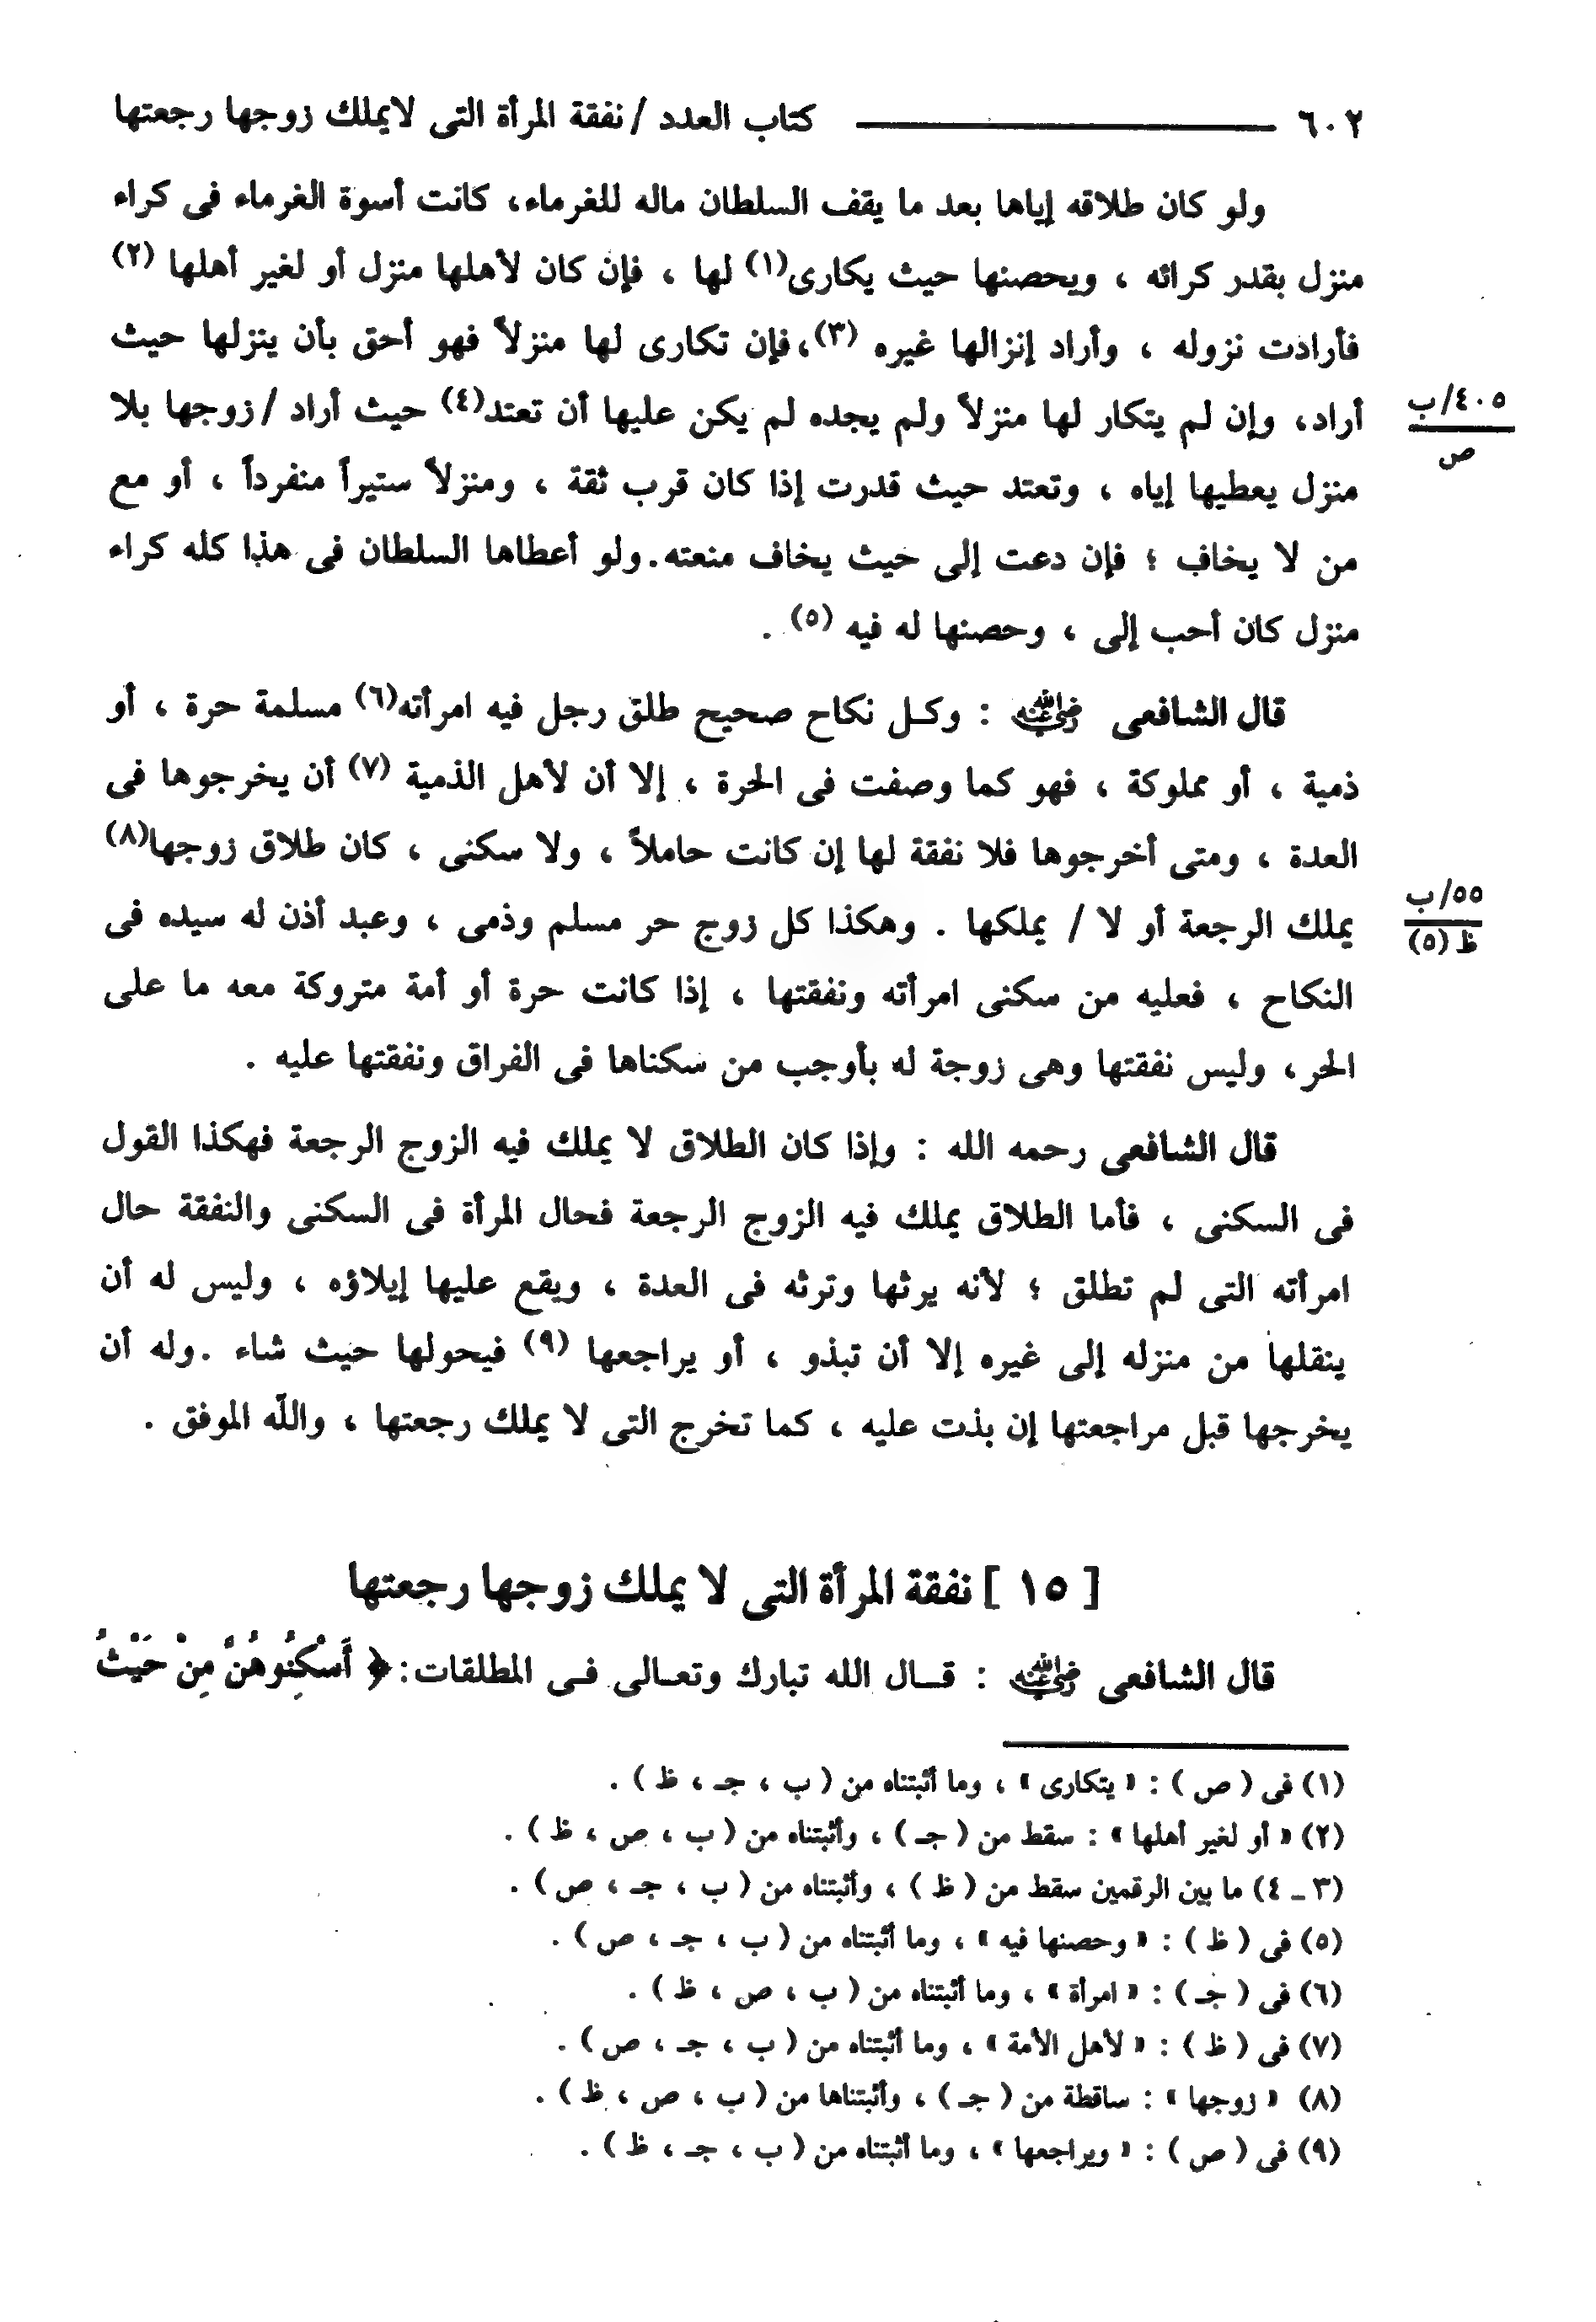 ٦٠٢ ــــــــــــ كتاب العدد / نفقة المرأة التى لايملك زوجها رجعتها
ولو كان طلاقه إياها بعد ما يقف السلطان ماله للغرماء، كانت أسوة الغرماء فى كراء
منزل بقدر كرائه ، ويحصنها حيث يكارى(١) لها ، فإن كان لأهلها منزل أو لغير أهلها (٢)
فأرادت نزوله ، وأراد إنزالها غيره (٣)،فإن تكارى لها منزلاً فهو أحق بأن ينزلها حيث
أراد، وإن لم يتكار لها منزلاً ولم يجده لم يكن عليها أن تعتد(٤) حيث أراد / زوجها بلا
٤٠٥/ب
ص
منزل يعطيها إياه ، وتعتد حيث قدرت إذا كان قرب ثقة ، ومنزلاً ستيراً منفرداً ، أو مع
من لا يخاف ؛ فإن دعت إلى حيث يخاف منعته.ولو أعطاها السلطان فى هذا كله كراء
منزل كان أحب إلى ، وحصنها له فيه (٥) .
قال الشافعى رضي الله عنه : وكـل نكاح صحيح طلق رجل فيه امرأته(٦) مسلمة حرة ، أو
ذمية ، أو مملوكة ، فهو كما وصفت فى الحرة ، إلا أن لأهل الذمية (٧) أن يخرجوها فى
العدة ، ومتى أخرجوها فلا نفقة لها إن كانت حاملاً ، ولا سكنى ، كان طلاق زوجها(٨)
يملك الرجعة أو لا / يملكها . وهكذا كل زوج حر مسلم وذمى ، وعبد أذن له سيده فى
٥٥/ب
ظ (٥)
النكاح ، فعليه من سكنى امرأته ونفقتها ، إذا كانت حرة أو أمة متروكة معه ما على
الحر، وليس نفقتها وهى زوجة له بأوجب من سكناها فى الفراق ونفقتها عليه .
قال الشافعى رحمه الله : وإذا كان الطلاق لا يملك فيه الزوج الرجعة فهكذا القول
فى السكنى ، فأما الطلاق يملك فيه الزوج الرجعة فحال المرأة فى السكنى والنفقة حال
امرأته التى لم تطلق ؛ لأنه يرثها وترثه فى العدة ، ويقع عليها إيلاؤه ، وليس له أن
ينقلها من منزله إلى غيره إلا أن تبذو ، أو يراجعها (٩) فيحولها حيث شاء .وله أن
يخرجها قبل مراجعتها إن بذت عليه ، كما تخرج التى لا يملك رجعتها ، والله الموفق .
[ ١٥ ] نفقة المرأة التى لا يملك زوجها رجعتها
قال الشافعى رضي الله عنه : قــال الله تبارك وتعـالى فـى المطلقات: ﴿ أَسْكِنُوهُنَّ مِنْ حَيْثُ
(١) فى ( ص ) : « يتكارى » ، وما أثبتناه من ( ب ، جـ ، ظ ) .
(٢) « أو لغير أهلها » : سقط من ( جـ ) ، وأثبتناه من ( ب ، ص ، ظ ) .
(٣ ـ ٤) ما بين الرقمين سقط من ( ظ ) ، وأثبتناه من ( ب ، جـ ، ص ) .
(٥) فى ( ظ ) : « وحصنها فيه » ، وما أثبتناه من ( ب ، جـ ، ص ) .
(٦) فى ( جـ ) : « امرأة » ، وما أثبتناه من ( ب ، ص ، ظ ) .
(٧) فى ( ظ ) : « لأهل الأمة » ، وما أثبتناه من ( ب ، جـ ، ص ) .
(٨) « زوجها » : ساقطة من ( جـ ) ، وأثبتناها من ( ب ، ص ، ظ ) .
(٩) فى ( ص ) : « ويراجعها » ، وما أثبتناه من ( ب ، جـ ، ظ ) .